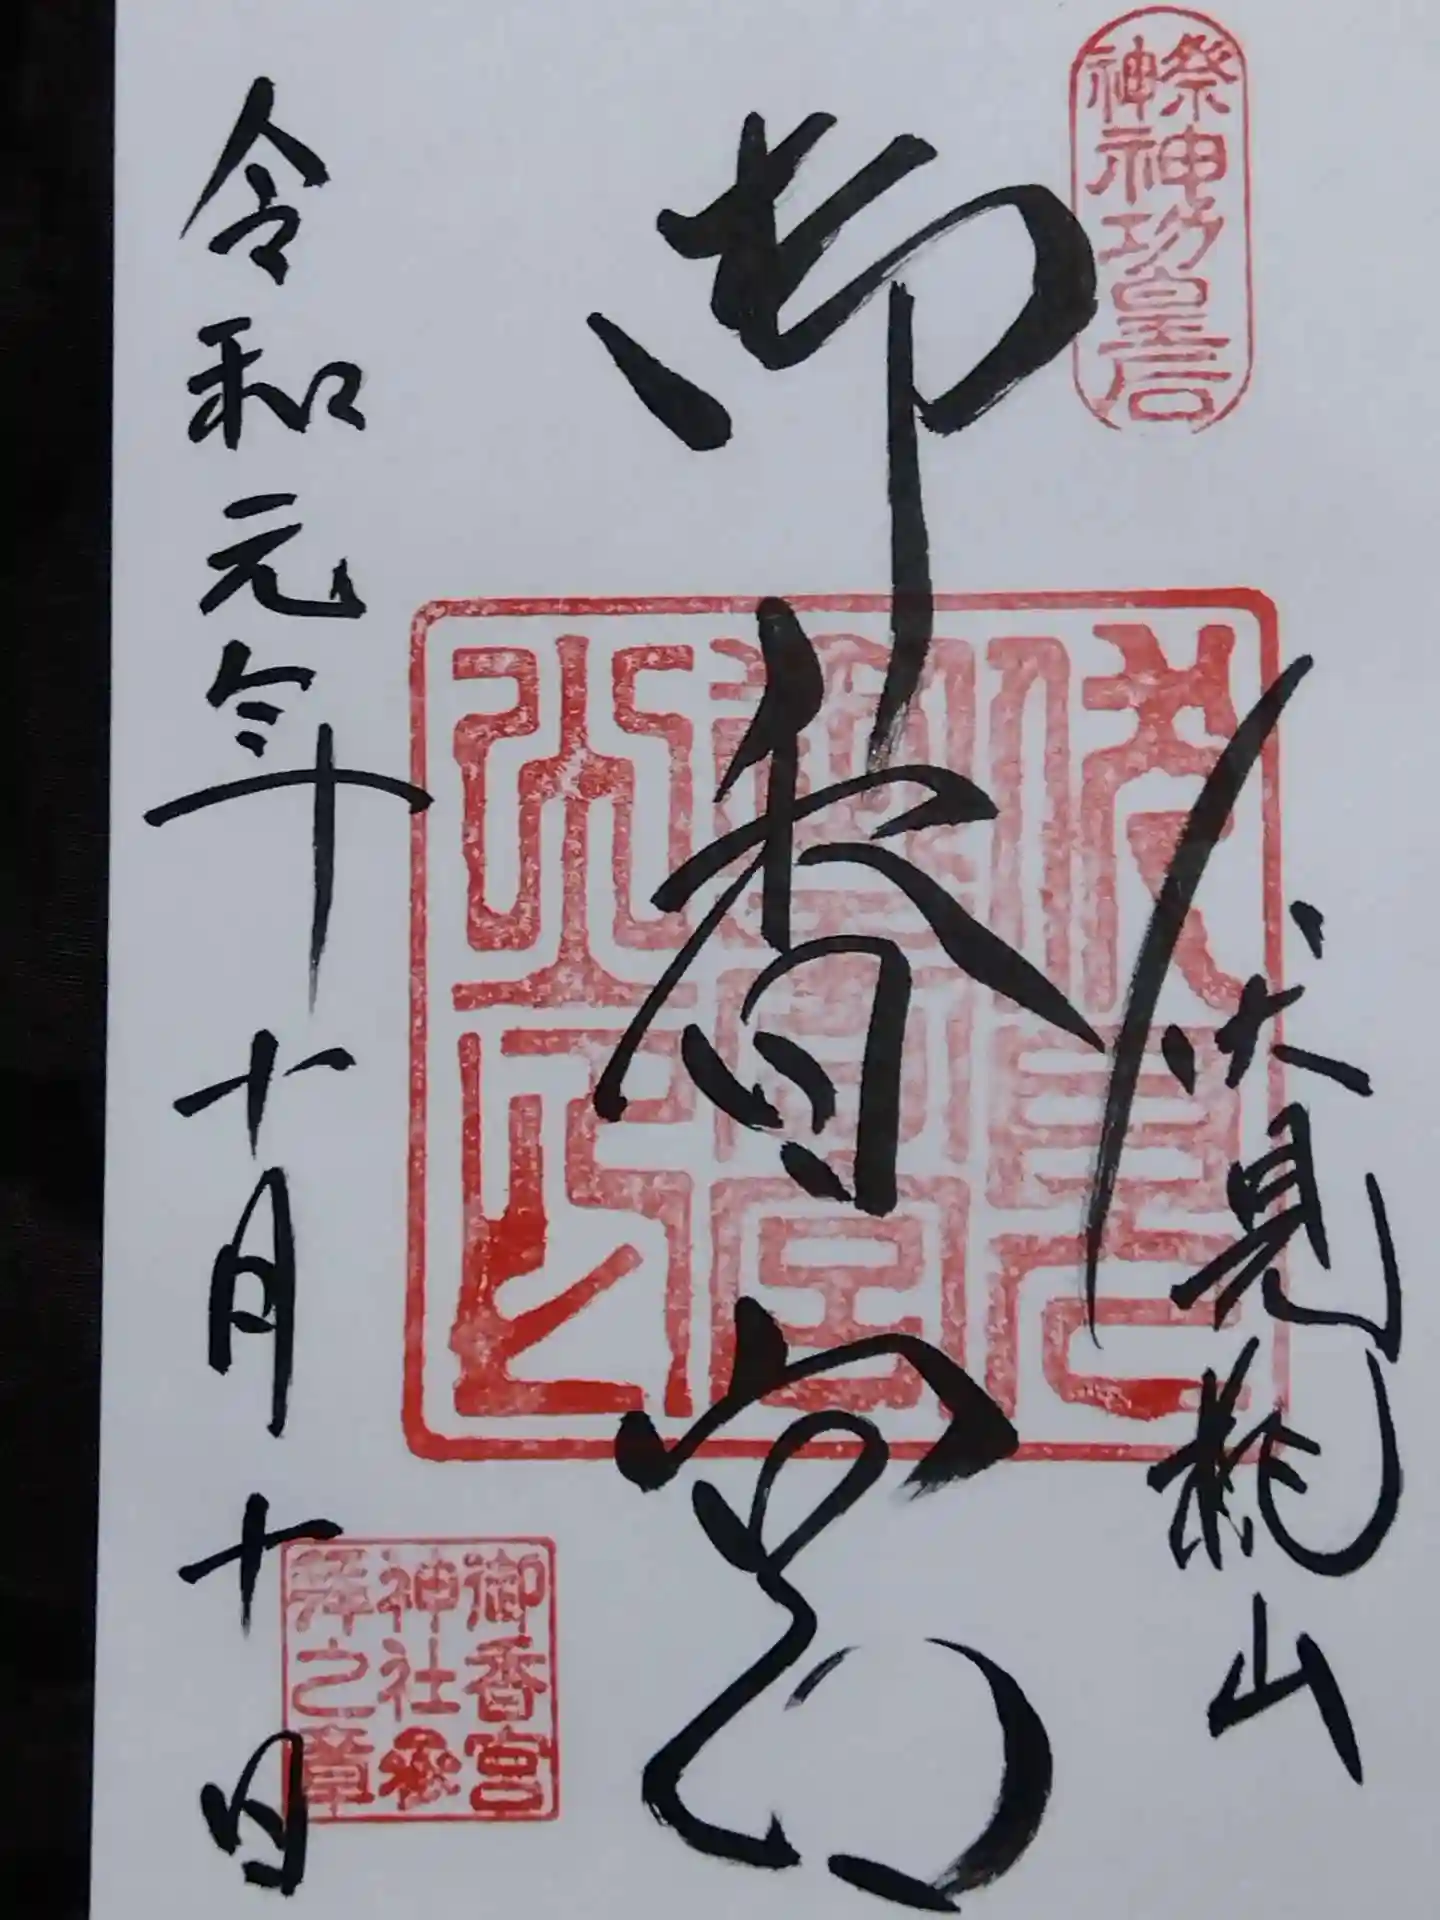 祭神
神功皇后
伏見桃山
御香宮
伏見
御香宮
御香宮
神社参
拝之章
令和元年十月十日